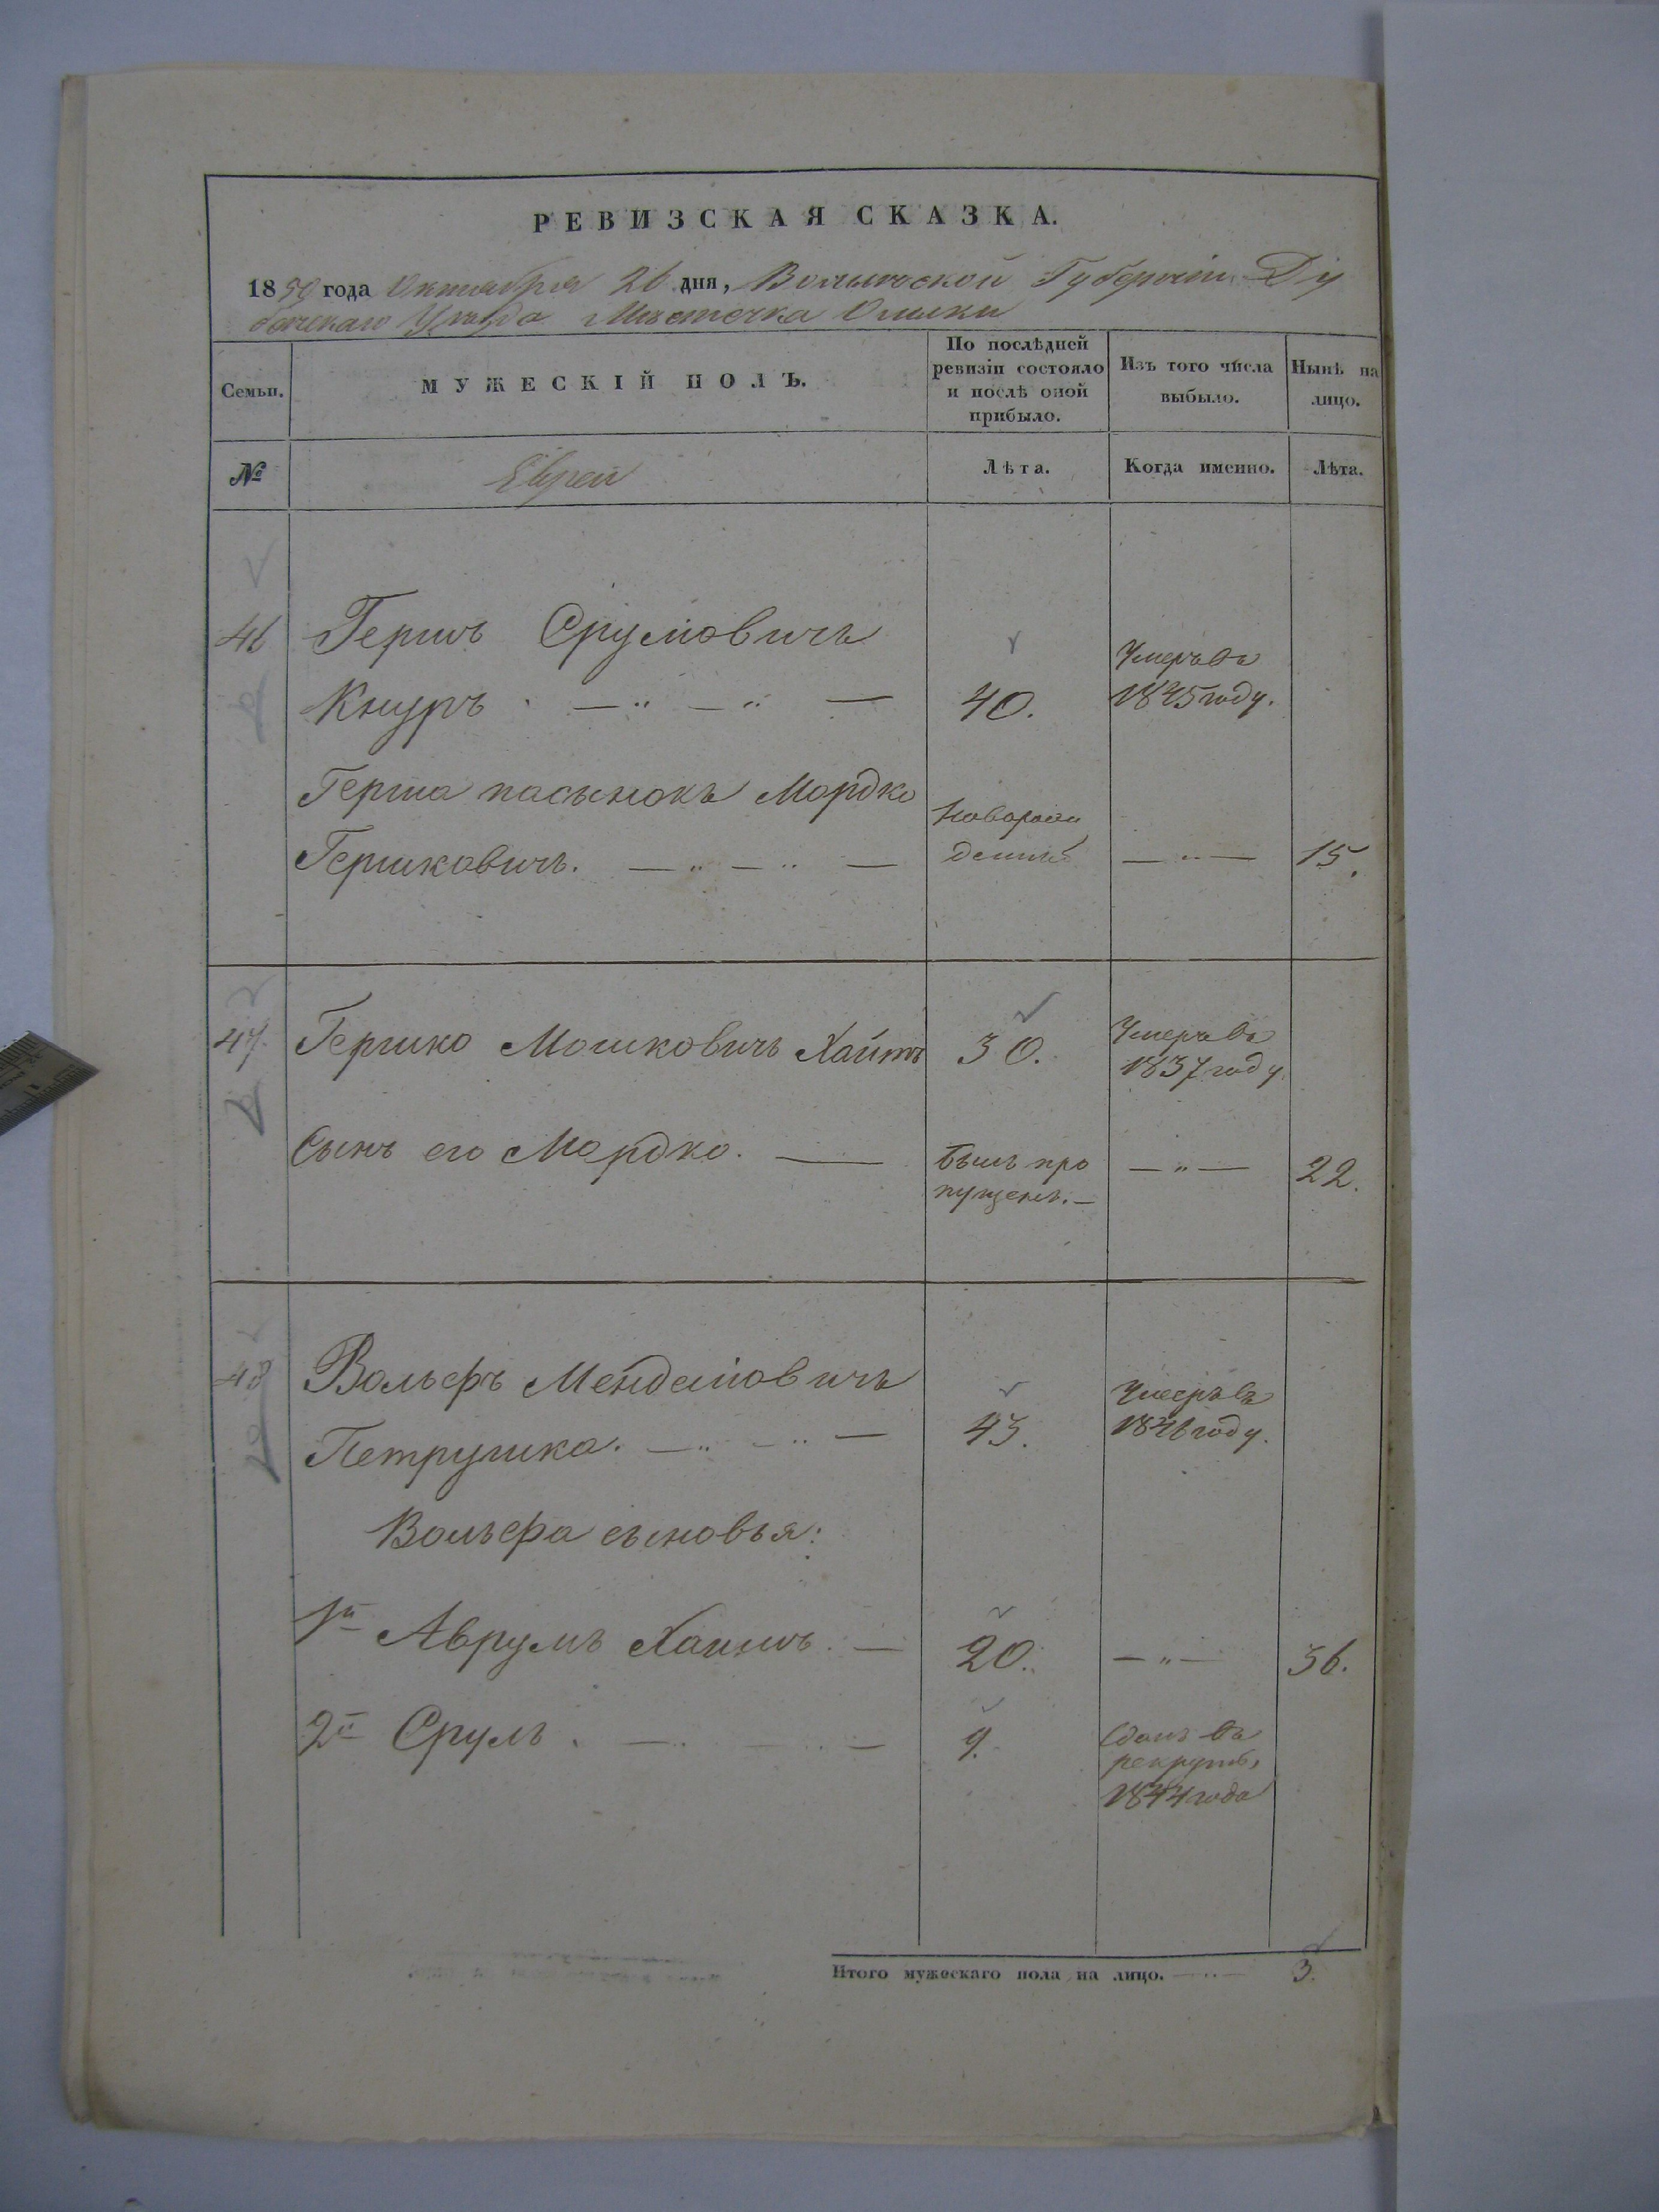 РЕВИЗСКАЯ СКАЗКА.
1850 года Октября 26 дня, Волынской Губерніи Ду
бенскаго Уѣзда Мѣстечка Олыки
Семьи.
МУЖЕСКІЙ ПОЛЪ.
По послѣдней
ревизіи состояло
и послѣ оной
прибыло.
Изъ того числа
выбыло.
Нынѣ на
лицо.
№
Евреи
Лѣта.
Когда именно.
Лѣта.
46 Гершъ Срулiовичъ
Умеръ въ
Кнуръ — " — " — 40. 1845 году.
Герша пасынокъ Мордко
Новорож
Гершковичъ. — " — " — денный — " — 15.
47. Гершко Мошковичъ Хаитъ 30. Умеръ въ
1837 году
Сынъ его Мордко. — Былъ про — " — 22.
пущенъ. —
48 Вольфъ Менделiовичъ
Умеръ въ
Петрушка. — " — " — 43. 1846 году.
Вольфа сыновья:
1й Аврумъ Хаимъ. — 20. — " — 36.
2й Сруль. — " — " — 9. Сданъ въ
рекруты,
1844 года
Итого мужескаго пола на лицо. — " — 3.